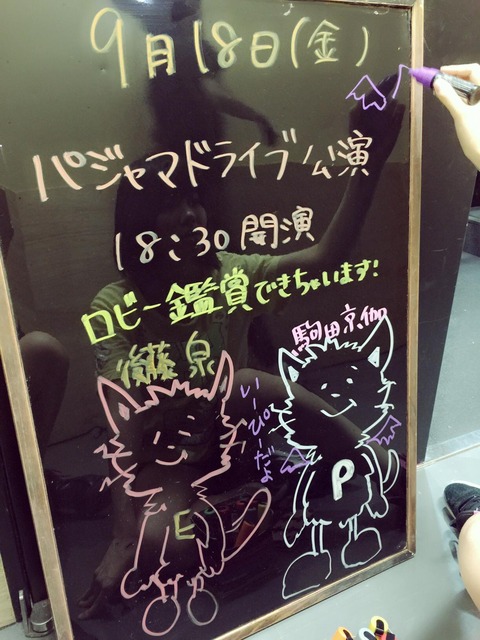 9月18日(金)
パジャマドライブ公演
18:30開演
ロビー鑑賞できちゃいます!
後藤 泉
駒田京伽
いーぴーだよ
E
P